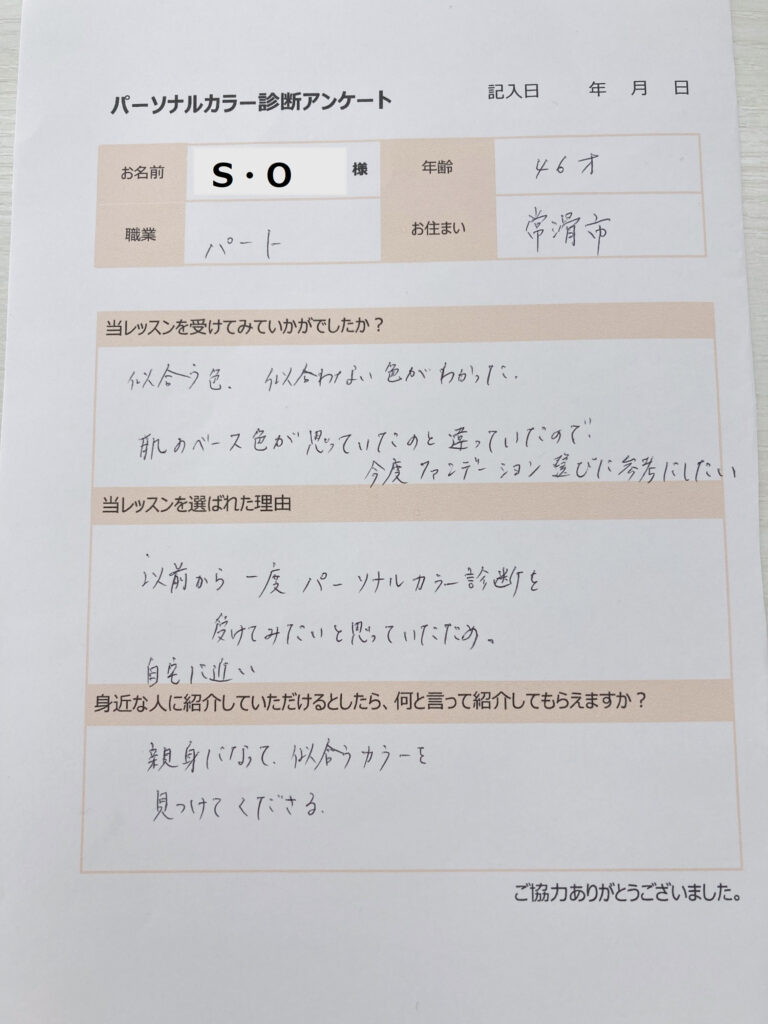 パーソナルカラー診断アンケート
記入日 年 月 日
お名前 S・O 様 年齢 46才
職業 パート お住まい 常滑市
当レッスンを受けてみていかがでしたか？
似合う色、似合わない色がわかった.
肌のベース色が思っていたのと違っていたので、
今度ファンデーション選びに参考にしたい
当レッスンを選ばれた理由
以前から一度パーソナルカラー診断を
受けてみたいと思っていただめ。
自宅に近い
身近な人に紹介していただけるとしたら、何と言って紹介してもらえますか？
親身になって、似合うカラーを
見つけてくださる.
ご協力ありがとうございました。